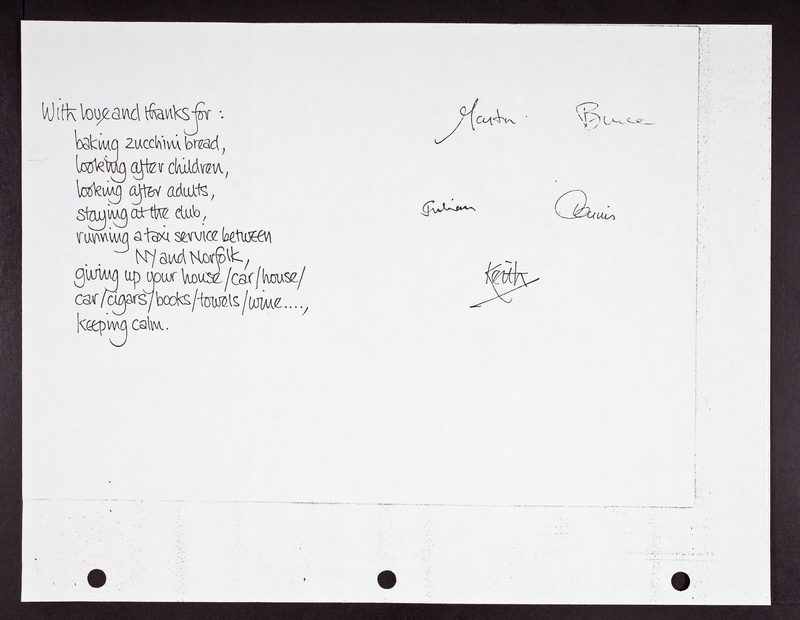 With love and thanks for :
baking zucchini bread,
looking after children,
looking after adults,
staying at the club,
running a taxi service between
NY and Norfolk,
giving up your house/car/house/
car/cigars/books/towels/wine....,
keeping calm.
Martin Bruce
Julian Dennis
Keith